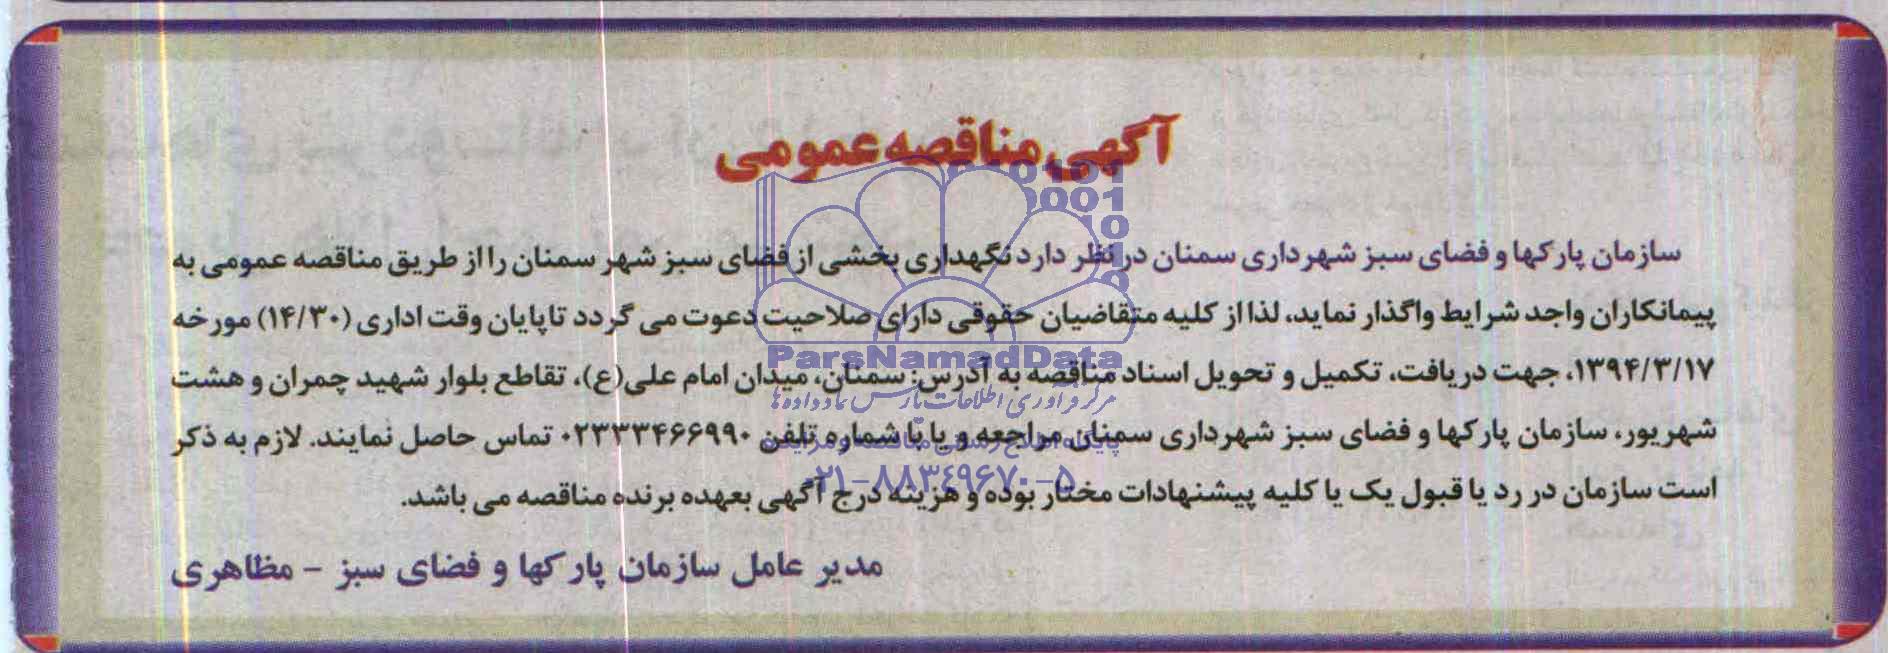 آگهی مناقصه عمومی
سازمان پارکها و فضای سبز شهرداری سمنان در نظر دارد نگهداری بخشی از فضای سبز شهر سمنان را از طریق مناقصه عمومی به
پیمانکاران واجد شرایط واگذار نماید، لذا از کلیه متقاضیان حقوقی دارای صلاحیت دعوت می گردد تا پایان وقت اداری (۱۴/۳۰) مورخه
۱۳۹۴/۳/۱۷، جهت دریافت، تکمیل و تحویل اسناد مناقصه به آدرس: سمنان، میدان امام علی(ع)، تقاطع بلوار شهید چمران و هشت
شهریور، سازمان پارکها و فضای سبز شهرداری سمنان مراجعه و یا با شماره تلفن ۰۲۳۳۳۴۶۶۹۹۰ تماس حاصل نمایند. لازم به ذکر
است سازمان در رد یا قبول یک یا کلیه پیشنهادات مختار بوده و هزینه درج آگهی بعهده برنده مناقصه می باشد.
مدیر عامل سازمان پارکها و فضای سبز – مظاهری
ParsNamadData
مرکز فرآوری اطلاعات پارس نماد داده ها
۰۲۱-۸۸۳۴۹۶۷۰-۵